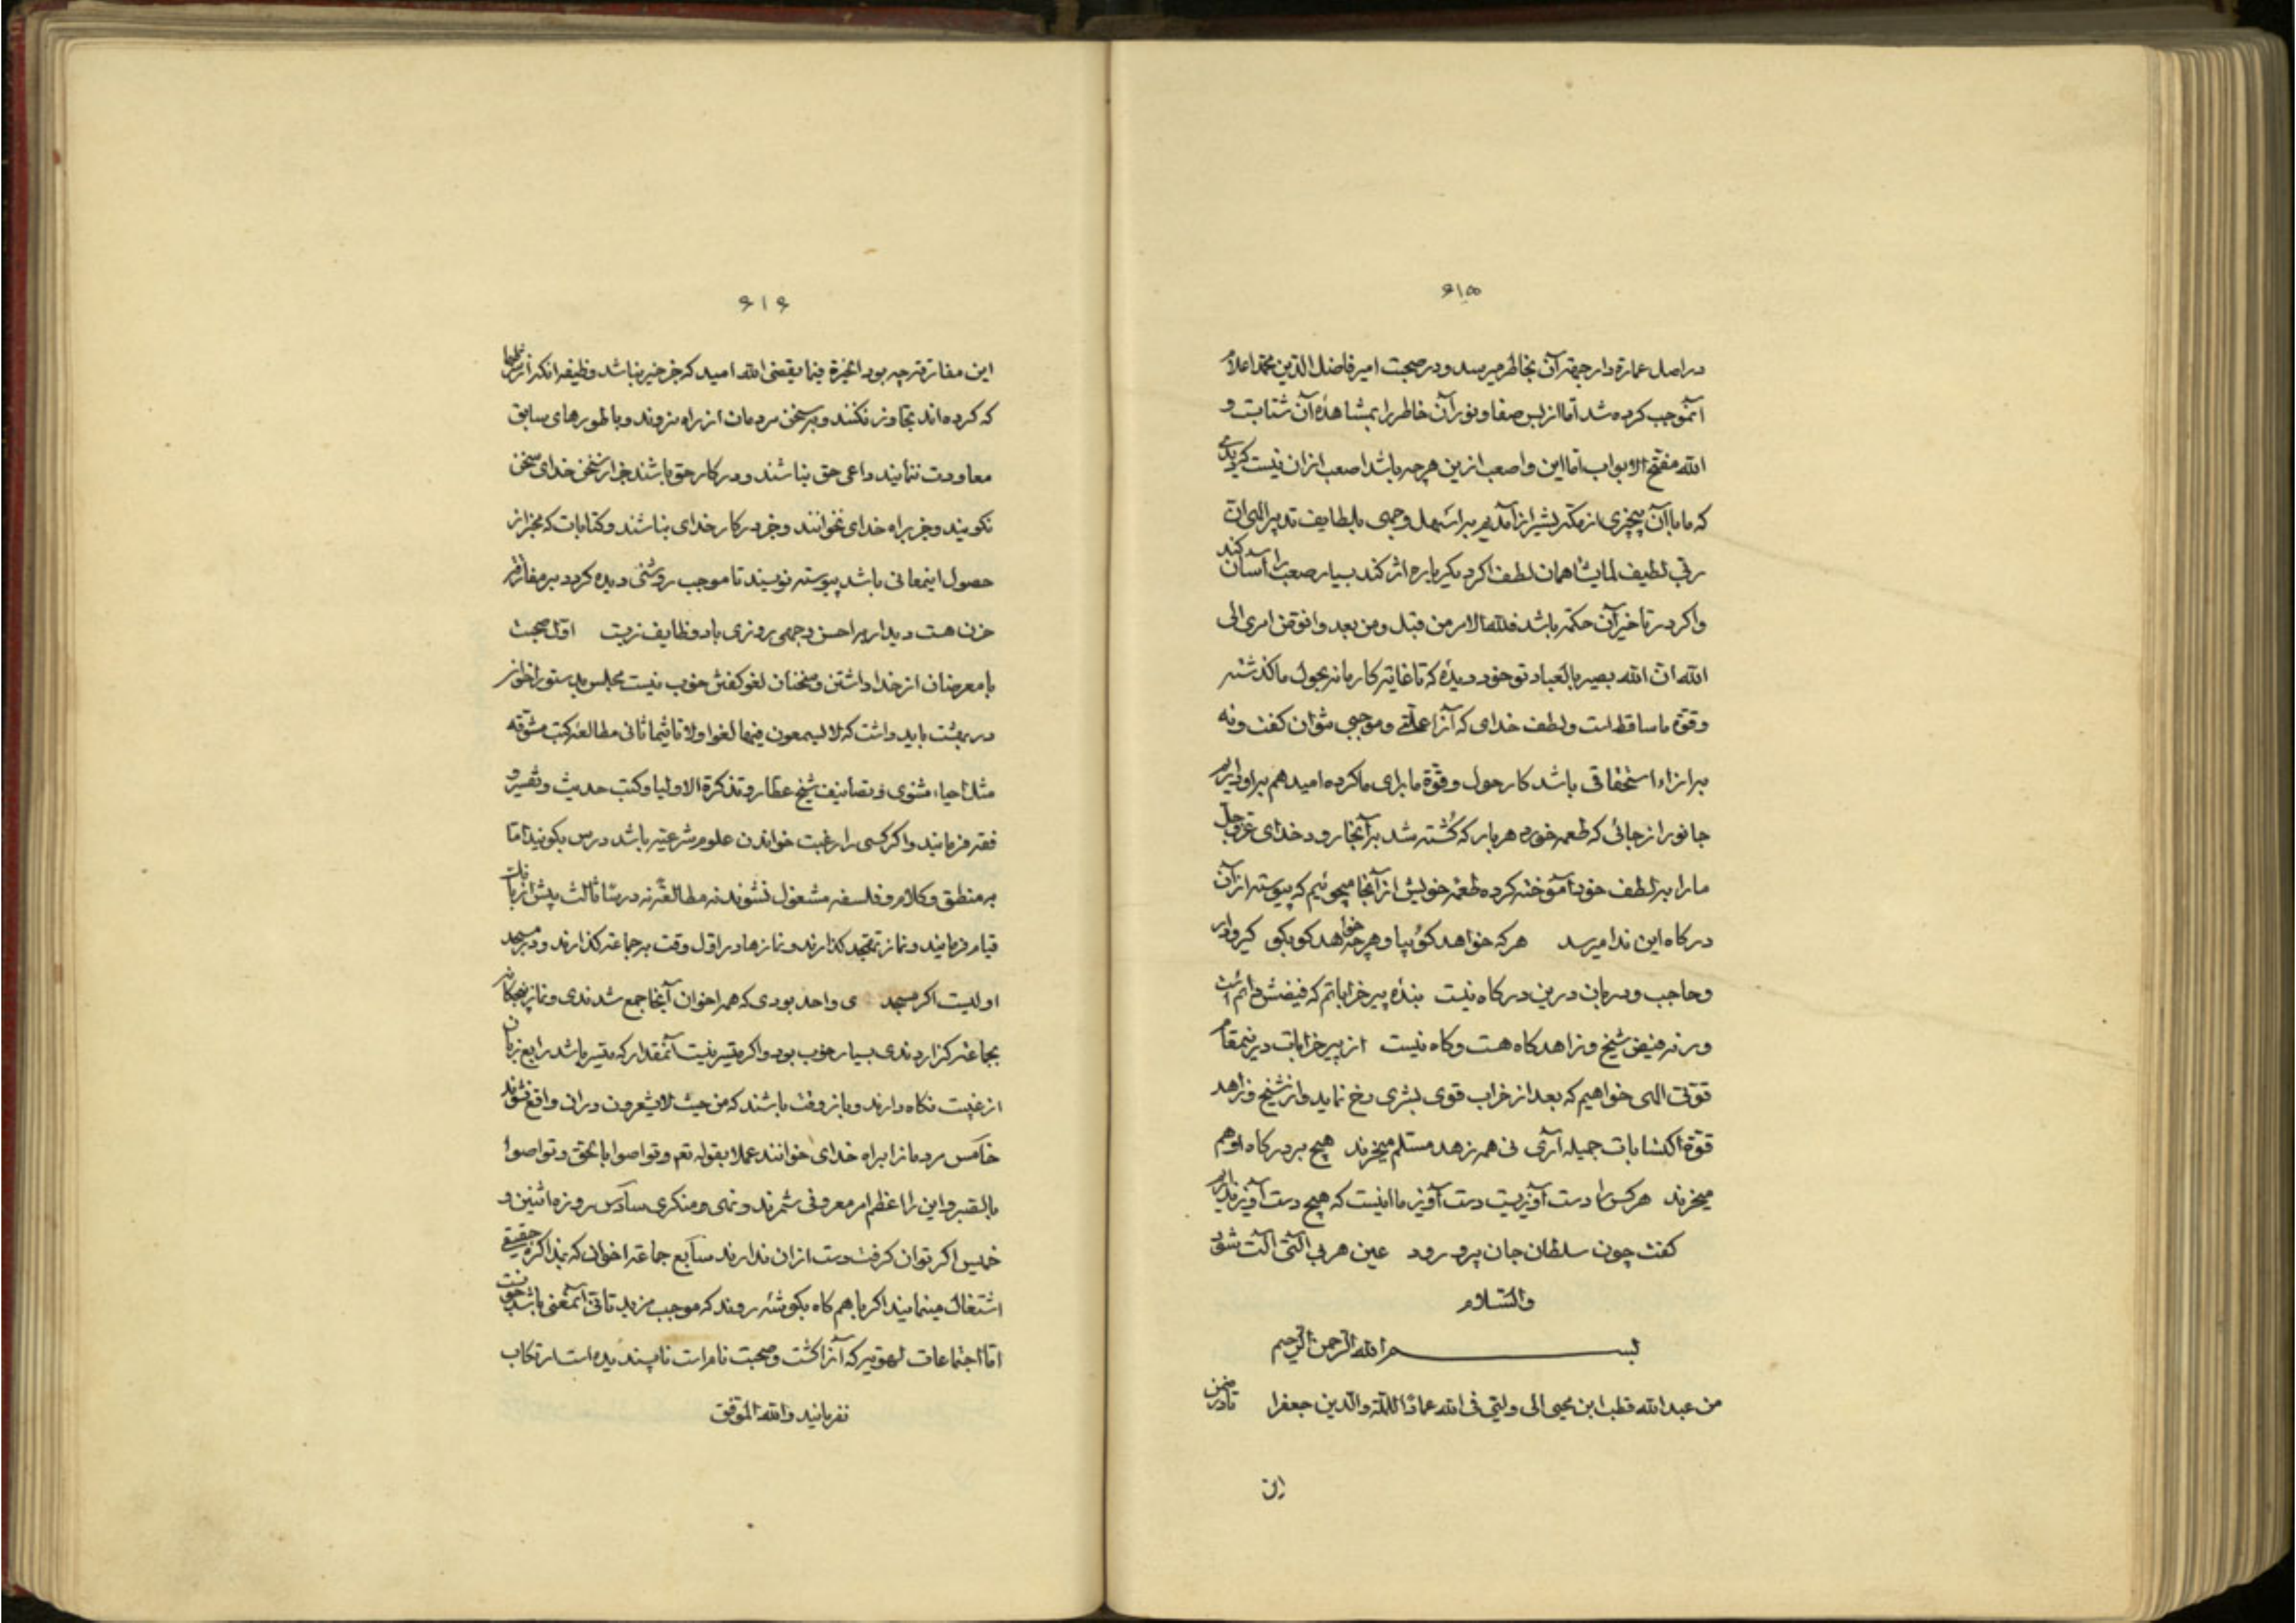 ۶۱۵
در اصل عمارة دار جهة آن بخاطر میرسد و در صحبت امیر فاضل الدین محمد اعلام
آنموجب کرده شد اما از بس صفا و نور آن خاطر را بمشاهدهٔ آن شتابت و
الله مفتح الابواب اما این و اصعب ازین هرچه باشد اصعب ازان نیست
که ما با آن بیچیزی از مکه بشیراز آمدیم بر اسهل وجهی بلطایف تدبیر الهی ان
ربی لطیف لما یشا همان لطف اگر دیگر باره اثر کند بسیار صعب را آسان کند
واکر در تاخیر آن حکمة باشد فلله الامر من قبل ومن بعد وافوض امری الی
الله ان الله بصیر بالعباد تو خود دیدهٔ که تا غایة کار ما نه بحول ما کذشته
وقوة ما ساقط است ولطف خدای که آنرا علتی وموجبی نتوان کفت ونه
برازاء استحقاقی باشد کار حول وقوة ما برای ما کرده امید هم براو داریم
جانور از جائی که طعمه خورده هر بار که کشته شد بر آنجا رود خدای عزوجل
ما را بر لطف خود آموخته کرده طعمهٔ خویش از آنجا میجوئیم که پیوسته از آن
درکاه این ندا میرسد هرکه خواهد کو بیا وهرچه خواهد کو بکو کیر ودار
وحاجب ودربان درین درکاه نیست بندهٔ پیر خراباتم که فیضش دائم است
ورنه فیض شیخ وزاهد کاه هست وکاه نیست از پیر خرابات درینمقام
قوتی الهی خواهیم که بعد از خراب قوی بشری رخ نماید واز شیخ وزاهد
قوة اکتسابات جمیله آری نی همه زهد مسلم میخرند هیچ بر درکاه او هم
میخرند هرکس را دست آویزیست دست آویز ما اینست که هیچ دست آویز نداریم
کفت چون سلطان جان پرو رود عین هر بی آلتی آلت شود
والسلام
بسم الله الرحمن الرحیم
من عبدالله قطب ابن یحیی الی ولیی فی الله عماد الملة والدین جعفرا
این
۶۱۶
این مفارقة چه بود الخیرة فیما یقضی الله امید که جز خیر نباشد وظیفه انکه از
که کرده‌اند تجاوز نکنند وبر سخن مردمان از راه نروند وباطورهای سابق
معاودت ننمایند داعی حق بناشند ودر کار حق باشند جز از سخن خدای سخن
نکویند وجز براه خدای نخوانند وجز در کار خدای نباشند وکتابات که مخبر از
حصول اینمعانی باشد پیوسته نویسند تا موجب روشنی دیده کردد بر مفارقة
حزن هست دیدار بر احسن وجهی روزی باد وظایف تربیت اول صحبت
با معرضان از خدا داشتن وسخنان لغو کفتن خوب نیست مجلس بدستور اخوان
در بهشت باید داشت که لا لیسمعون فیها لغوا ولا تاثیما ثانی مطالعهٔ کتب مشوقه
مثل احیاء مثنوی وتصانیف شیخ عطار وتذکرة الاولیا وکتب حدیث وتفسیر و
فقه فرمایند واکر کسی را رغبت خواندن علوم شرعیه باشد درس بکویند اما
بر منطق وکلام وفلسفه مشغول نشوند نه مطالعة نه درسا ثالث پیش از
قیام فرمایند ونماز تهجد کذارند ونمازها در اول وقت بر جماعة کذارند ودر مسجد
اولیست اکر مسجد ی واحد بودی که همه اخوان آنجا جمع شدندی ونماز پنجکانه
بجماعة کزاردندی بسیار خوب بود واکر میسر نیست آنمقدار که میسر باشد رابع زبان
از غیبت نکاه دارند وباز وقت باشند که من حیث لا یشعرون دران واقع نشوند
خامس مردمانرا براه خدای خوانند عملا بقوله تعم وتواصوا بالحق وتواصوا
بالصبر واین را اعظم امر معروفی شمرند ونهی ومنکری سادس روزه اثنین و
خمیس اکر توان کرفت دست ازان ندارند سابع جماعة اخوان که بمذاکرهٔ حقیقی
اشتغال مینمایند اکر با هم کاه بکوشهٔ روند که موجب مزید تاتی آنمعنی باشد خوبست
اما اجتماعات لهویه که آنرا کشت وصحبت نامراست ناپسندیده است ارتکاب
نفرمایند والله الموفق